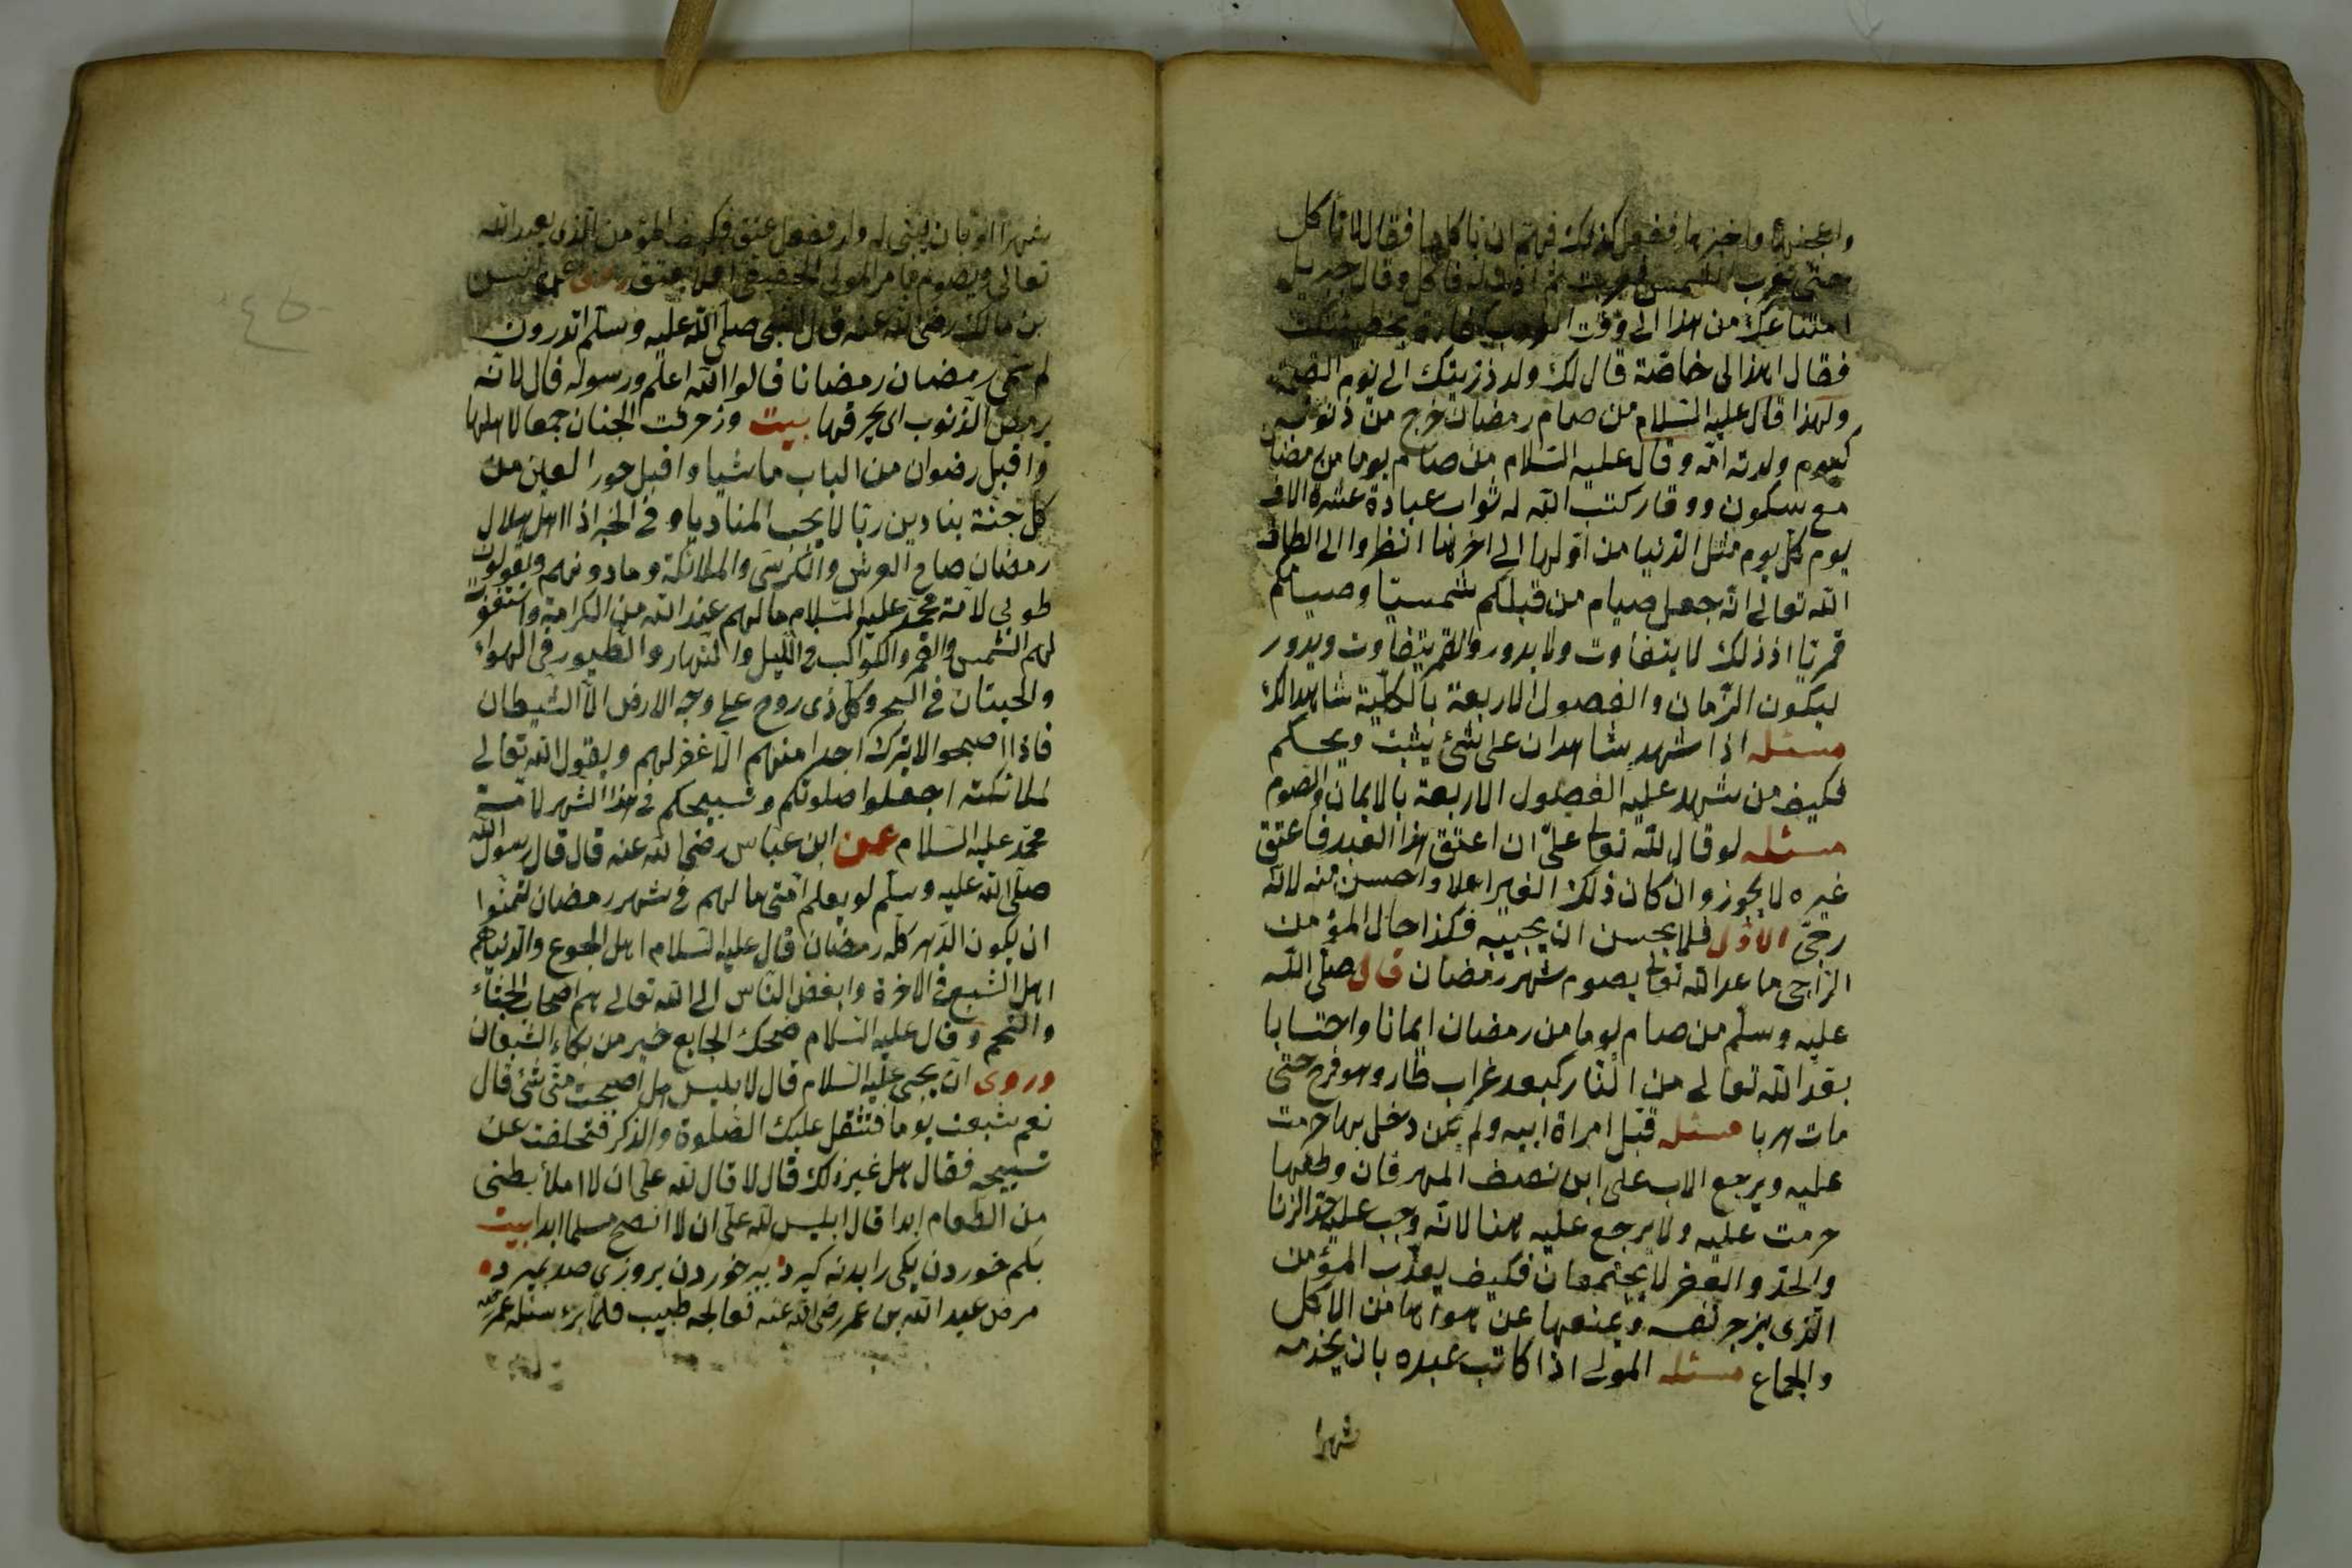 واعجنها واخبزها ففعل كذلك فهم ان ياكلها فقال لا تأكل
حتى تغرب الشمس ثم اذن له فاكل وقال جبريل
امتناعك من هذا الى وقت
فقال اهذا لى خاصّة قال لك ولد ذريتك الى يوم القيمة
ولهذا قال عليه السّلام من صام رمضان خرج من ذنوبه
كيوم ولدته امّه وقال عليه السّلام من صام يوما من رمضان
مع سكون ووقار كتب الله له ثواب عبادة عشرة الاف
يوم كلّ يوم مثل الدّنيا من اوّلها الى اخرها انظروا الى الطاف
الله تعالى انّه جعل صيام من قبلكم شمسيّا وصيامكم
قمريّا اذ ذلك لا يتفاوت ولا يدور والقمر يتفاوت ويدور
ليكون الزّمان والفصول الاربعة بالكليّة شاهدا لك
مسئله اذا شهد شاهدان على شئ يثبت ويحكم
فكيف من شهد عليه الفصول الاربعة بالايمان والصّوم
مسئله لو قال لله تعالى علىّ ان اعتق هذا العبد فاعتق
غيره لا يجوز وان كان ذلك الغير اعلا واحسن منه لانّه
رجّى الاوّل فلا يحسن ان يخيّبه فكذا حال المؤمن
الرّاجى ما عند الله تعالى يصوم شهر رمضان قال صلّى الله
عليه وسلّم من صام يوما من رمضان ايمانا واحتسابا
بعّد الله تعالى من النّار كبعد غراب طار وهو فرخ حتّى
مات هربا مسئله قبّل امراة ابيه ولم يكن دخل بها حرمت
عليه ويرجع الاب على ابن نصف المهر فان وطئها
حرمت عليه ولا يرجع عليه هنا لانّه وجب عليه حدّ الزّنا
والحدّ والعقر لا يجتمعان فكيف يعذّب المؤمن
الّذى يزجر نفسه ويمنعها عن هواها من الاكل
والجماع مسئله المولى اذا كاتب عبده بان يخدمه
شهرا
شهرا او بان يبنى له دار ففعل عتق فكيف المؤمن الّذى يعبد الله
تعالى ويصوم بامر المولى الحقيقى افلا يعتق روى عن انس
بن مالك رضى الله عنه قال النّبى صلّى الله عليه وسلّم اتدرون
لم سمّى رمضان رمضانا قالوا الله اعلم ورسوله قال لانّه
يرمض الذّنوب اى يحرقها بيت وزخرفت الجنان جمعا لاهلها
واقبل رضوان من الباب ماشيا واقبل حور العين من
كلّ جنّة ينادين ربّا لا يخيب المناديا وفى الخبر اذا اهلّ هلال
رمضان صاح العرش والكرسى والملائكة وما دونهم ويقولون
طوبى لامّة محمّد عليه السّلام ما لهم عند الله من الكرامة واستغفرت
لهم الشّمس والقمر والكواكب واللّيل والنّهار والطّيور فى الهواء
والحيتان فى البحر وكلّ ذى روح على وجه الارض الّا الشّيطان
فاذا اصبحوا لا يترك احدا منهم الّا غفر لهم ويقول الله تعالى
لملائكته اجعلوا صلوتكم وتسبيحكم فى هذا الشّهر لامّة
محمّد عليه السّلام عن ابن عبّاس رضى الله عنه قال قال رسول الله
صلّى الله عليه وسلّم لو يعلم امّتى ما لهم فى شهر رمضان لتمنّوا
ان يكون الدّهر كلّه رمضان قال عليه السّلام اهل الجوع والدّنيا هم
اهل الشّبع فى الاخرة وابغض النّاس الى الله تعالى هم اصحاب الجشاء
والتّخم وقال عليه السّلام ضحك الجايع خير من بكاء الشّبعان
وروى انّ يحيى عليه السّلام قال لابليس هل اصبحت منّى شئ قال
نعم شبعت يوما فتثقل عليك الصّلوة والذكر فتخلفت عن
تسبيحه فقال هل غير ذلك قال لا قال لله علىّ ان لا املأ بطنى
من الطّعام ابدا قال ابليس لله علىّ ان لا انصح مسلما ابدا بيت
بكم خوردن يكى را بدنه گيرد پر خوردن بروزى صد بميرد
مرض عبد الله بن عمر رضى الله عنه فعالجه طبيب فلمّا برء سئله عمر
٤٥